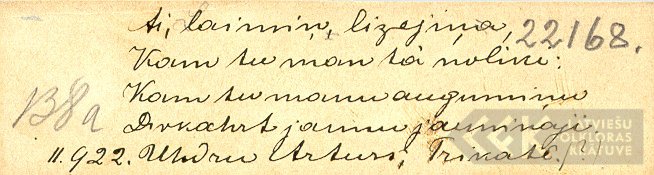 Ai, laimiņ, lizejiņa,
22168.
Kam tu man tā noliki:
Kam tu manu augumiņu
B8a
Divkahrt jaunu jauninaji.
11. 922. Uhdru Arturs, Trikatē.
LATVIEŠU
FOLKLORAS
KRĀTUVE